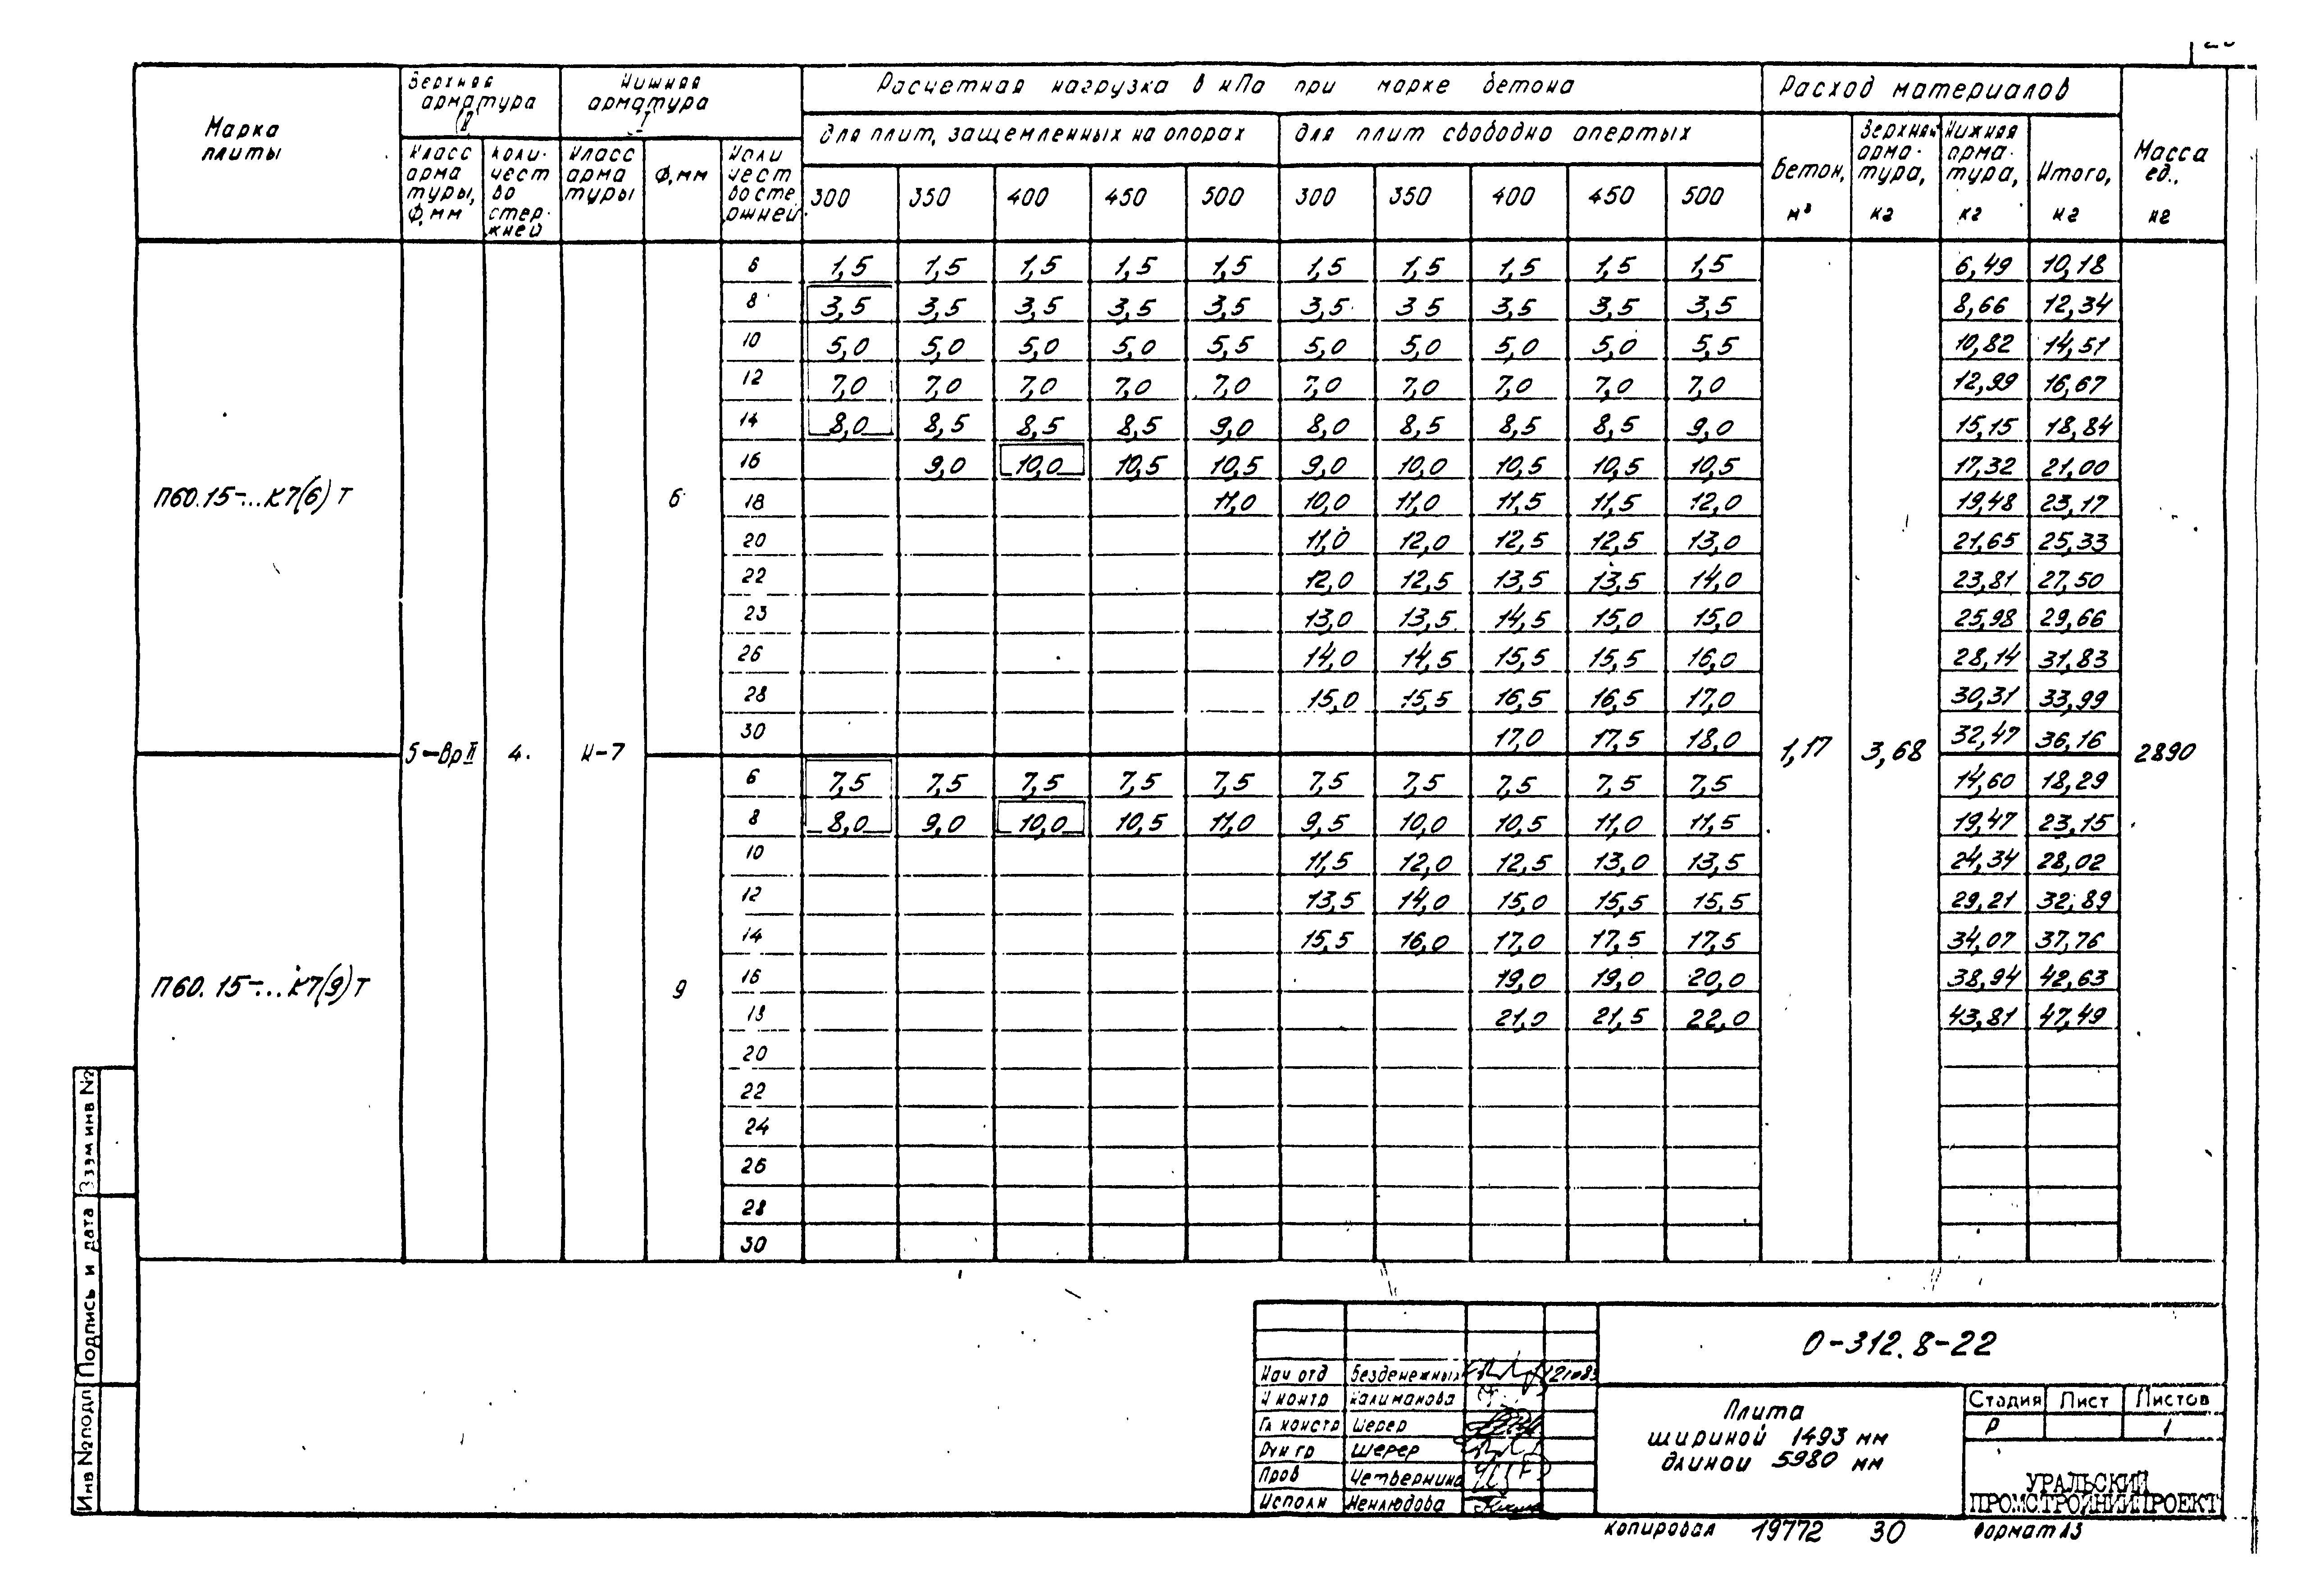 Марка плиты | Верхняя арматура | Нижняя арматура I | Расчетная нагрузка в кПа при марке бетона | Расход материалов | Масса ед., кг
для плит, защемленных на опорах | для плит свободно опертых
Класс арматуры, Ф, мм | Количество стержней | Класс арматуры | Ф, мм | Количество стержней | 300 | 350 | 400 | 450 | 500 | 300 | 350 | 400 | 450 | 500 | Бетон, м³ | Верхняя арматура, кг | Нижняя арматура, кг | Итого, кг
6 1,5 1,5 1,5 1,5 1,5 1,5 1,5 1,5 1,5 1,5 6,49 10,18
8 3,5 3,5 3,5 3,5 3,5 3,5 3 5 3,5 3,5 3,5 8,66 12,34
10 5,0 5,0 5,0 5,0 5,5 5,0 5,0 5,0 5,0 5,5 10,82 14,51
12 7,0 7,0 7,0 7,0 7,0 7,0 7,0 7,0 7,0 7,0 12,99 16,67
14 8,0 8,5 8,5 8,5 9,0 8,0 8,5 8,5 8,5 9,0 15,15 18,84
16 9,0 10,0 10,5 10,5 9,0 10,0 10,5 10,5 10,5 17,32 21,00
П60.15-...К7(6)Т 6 18 11,0 10,0 11,0 11,5 11,5 12,0 19,48 23,17
20 11,0 12,0 12,5 12,5 13,0 21,65 25,33
22 12,0 12,5 13,5 13,5 14,0 23,81 27,50
23 13,0 13,5 14,5 15,0 15,0 25,98 29,66
26 14,0 14,5 15,5 15,5 16,0 28,14 31,83
28 15,0 15,5 16,5 16,5 17,0 30,31 33,99
30 17,0 17,5 18,0 32,47 36,16
5-Вр II 4 К-7 1,17 3,68 2890
6 7,5 7,5 7,5 7,5 7,5 7,5 7,5 7,5 7,5 7,5 14,60 18,29
8 8,0 9,0 10,0 10,5 11,0 9,5 10,0 10,5 11,0 11,5 19,47 23,15
10 11,5 12,0 12,5 13,0 13,5 24,34 28,02
12 13,5 14,0 15,0 15,5 15,5 29,21 32,89
14 15,5 16,0 17,0 17,5 17,5 34,07 37,76
П60.15-...К7(9)Т 9 16 19,0 19,0 20,0 38,94 42,63
18 21,0 21,5 22,0 43,81 47,49
20
22
24
26
28
30
Инв №подл Подпись и дата Взам инв №
О-312.8-22
Нач отд Безденежных
Н контр Калиманова
Гл констр Шерер
Рук гр Шерер
Пров Четверкина
Исполн Неклюдова
Плита
шириной 1493 мм
длиной 5980 мм
Стадия Лист Листов
Р 1
УРАЛЬСКИЙ
ПРОМСТРОЙНИИПРОЕКТ
Копировал 19772 30 Формат А3